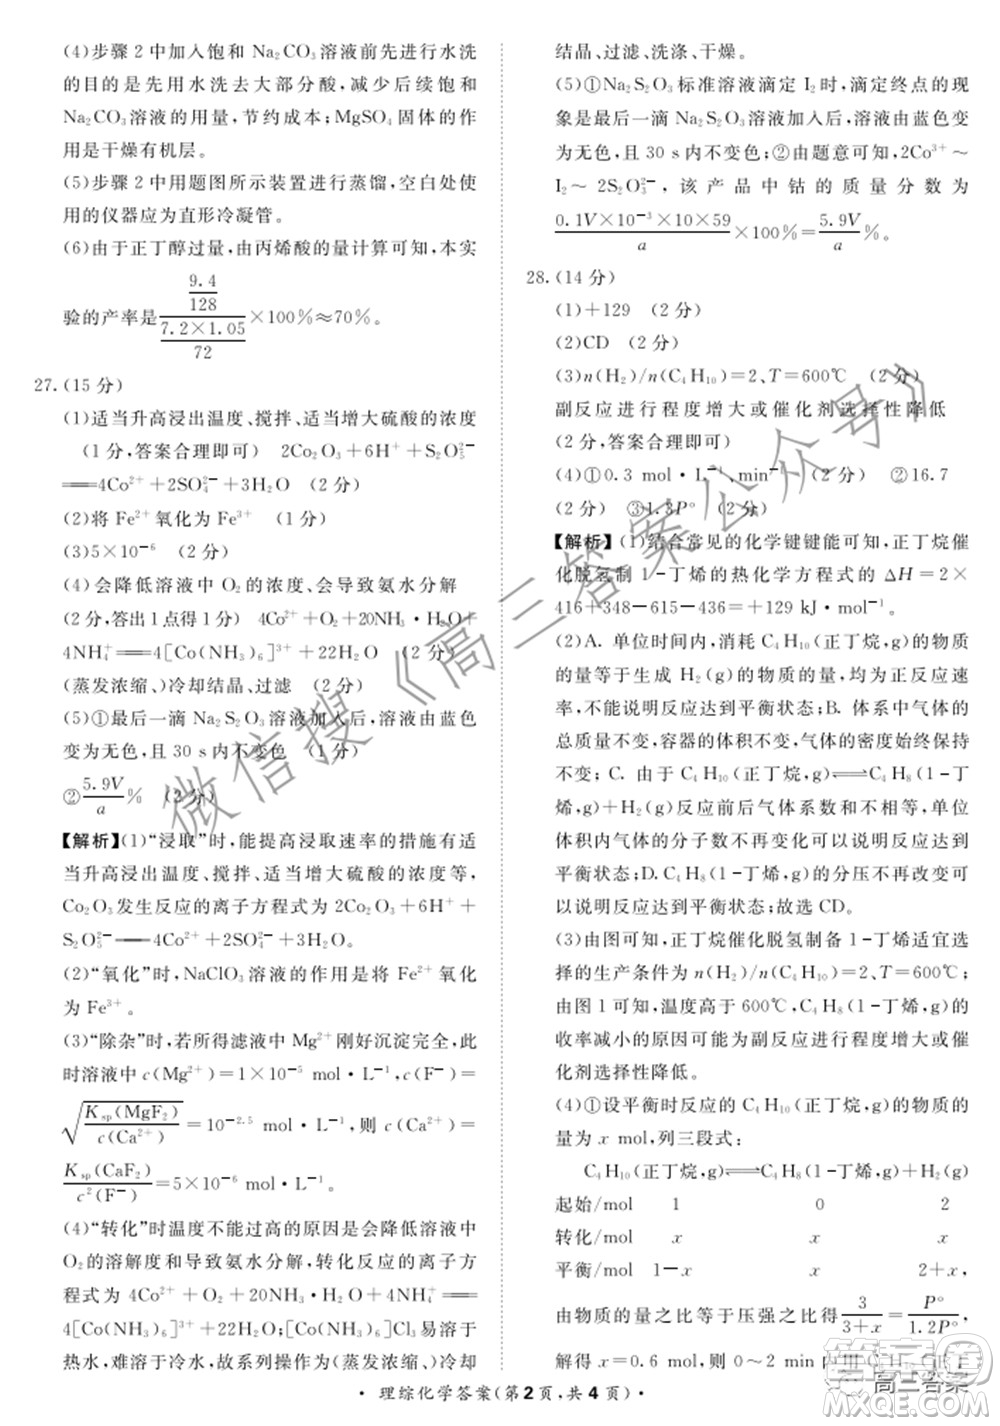 (4)步骤2中加入饱和Na₂CO₃溶液前先进行水洗
的目的是先用水洗去大部分酸,减少后续饱和
Na₂CO₃溶液的用量,节约成本;MgSO₄固体的作
用是干燥有机层。
(5)步骤2中用题图所示装置进行蒸馏,空白处使
用的仪器应为直形冷凝管。
(6)由于正丁醇过量,由丙烯酸的量计算可知,本实
验的产率是(9.4/128)/(7.2×1.05/72)×100%≈70%。
27.(15分)
(1)适当升高浸出温度、搅拌、适当增大硫酸的浓度
(1分,答案合理即可) 2Co₂O₃+6H⁺+S₂O₅²⁻
══4Co²⁺+2SO₄²⁻+3H₂O (2分)
(2)将Fe²⁺氧化为Fe³⁺ (1分)
(3)5×10⁻⁶ (2分)
(4)会降低溶液中O₂的浓度、会导致氨水分解
(2分,答出1点得1分) 4Co²⁺+O₂+20NH₃·H₂O+
4NH₄⁺══4[Co(NH₃)₆]³⁺+22H₂O (2分)
(蒸发浓缩、)冷却结晶、过滤 (2分)
(5)①最后一滴Na₂S₂O₃溶液加入后,溶液由蓝色
变为无色,且30 s内不变色 (1分)
②5.9V/a% (2分)
【解析】(1)“浸取”时,能提高浸取速率的措施有适
当升高浸出温度、搅拌、适当增大硫酸的浓度等,
Co₂O₃发生反应的离子方程式为2Co₂O₃+6H⁺+
S₂O₅²⁻══4Co²⁺+2SO₄²⁻+3H₂O。
(2)“氧化”时,NaClO₃溶液的作用是将Fe²⁺氧化
为Fe³⁺。
(3)“除杂”时,若所得滤液中Mg²⁺刚好沉淀完全,此
时溶液中c(Mg²⁺)=1×10⁻⁵ mol·L⁻¹,c(F⁻)=
√(Ksp(MgF₂)/c(Ca²⁺))=10⁻²·⁵ mol·L⁻¹,则c(Ca²⁺)=
Ksp(CaF₂)/c²(F⁻)=5×10⁻⁶ mol·L⁻¹。
(4)“转化”时温度不能过高的原因是会降低溶液中
O₂的溶解度和会导致氨水分解,转化反应的离子方
程式为4Co²⁺+O₂+20NH₃·H₂O+4NH₄⁺══
4[Co(NH₃)₆]³⁺+22H₂O;[Co(NH₃)₆]Cl₃易溶于
热水,难溶于冷水,故系列操作为(蒸发浓缩、)冷却
结晶、过滤、洗涤、干燥。
(5)①Na₂S₂O₃标准溶液滴定I₂时,滴定终点的现
象是最后一滴Na₂S₂O₃溶液加入后,溶液由蓝色变
为无色,且30 s内不变色;②由题意可知,2Co³⁺～
I₂～2S₂O₃²⁻,该产品中钴的质量分数为
0.1V×10⁻³×10×59/a×100%=5.9V/a%。
28.(14分)
(1)+129 (2分)
(2)CD (2分)
(3)n(H₂)/n(C₄H₁₀)=2、T=600℃ (2分)
副反应进行程度增大或催化剂选择性降低
(2分,答案合理即可)
(4)①0.3 mol·L⁻¹·min⁻¹ (2分) ②16.7
(2分) ③1.3P° (2分)
【解析】(1)结合常见的化学键键能可知,正丁烷催
化脱氢制1-丁烯的热化学方程式的ΔH=2×
416+348-615-436=+129 kJ·mol⁻¹。
(2)A.单位时间内,消耗C₄H₁₀(正丁烷,g)的物质
的量等于生成H₂(g)的物质的量,均为正反应速
率,不能说明反应达到平衡状态;B.体系中气体的
总质量不变,容器的体积不变,气体的密度始终保持
不变;C.由于C₄H₁₀(正丁烷,g)⇌C₄H₈(1-丁
烯,g)+H₂(g)反应前后气体系数和不相等,单位
体积内气体的分子数不再变化可以说明反应达到
平衡状态;D.C₄H₈(1-丁烯,g)的分压不再改变可
以说明反应达到平衡状态;故选CD。
(3)由图可知,正丁烷催化脱氢制备1-丁烯适宜选
择的生产条件为n(H₂)/n(C₄H₁₀)=2、T=600℃;
由图1可知,温度高于600℃,C₄H₈(1-丁烯,g)的
收率减小的原因可能为副反应进行程度增大或催
化剂选择性降低。
(4)①设平衡时反应的C₄H₁₀(正丁烷,g)的物质的
量为x mol,列三段式:
C₄H₁₀(正丁烷,g)⇌C₄H₈(1-丁烯,g)+H₂(g)
起始/mol 1 0 2
转化/mol x x x
平衡/mol 1-x x 2+x,
由物质的量之比等于压强之比得3/(3+x)=P°/1.2P°,
解得x=0.6 mol,则0～2 min内用C₄H₁₀(正丁
·理综化学答案(第2页,共4页)·
微信搜《高三答案公众号》
高三答案